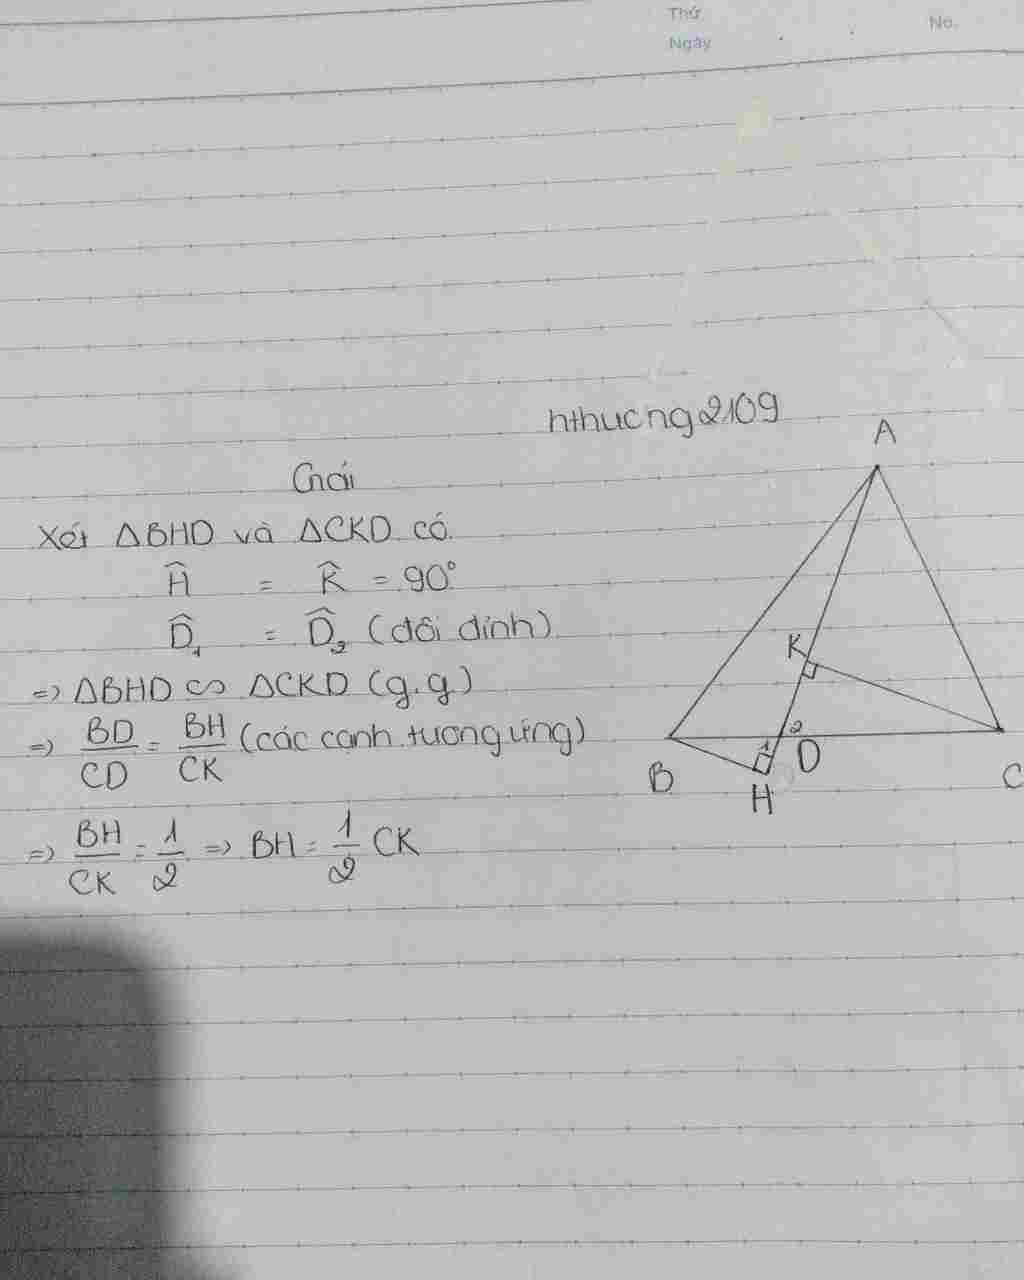 Thứ
Ngày
No.
nthucng2109
Giải
Xét ΔBHD và ΔCKD có
Ĥ = K̂ = 90°
D̂₁ = D̂₂ (đối đỉnh)
=> ΔBHD ∽ ΔCKD (g.g)
=> BD/CD = BH/CK (các cạnh tương ứng)
=> BH/CK = 1/2 => BH = 1/2 CK
A
K
1 2
B H D C